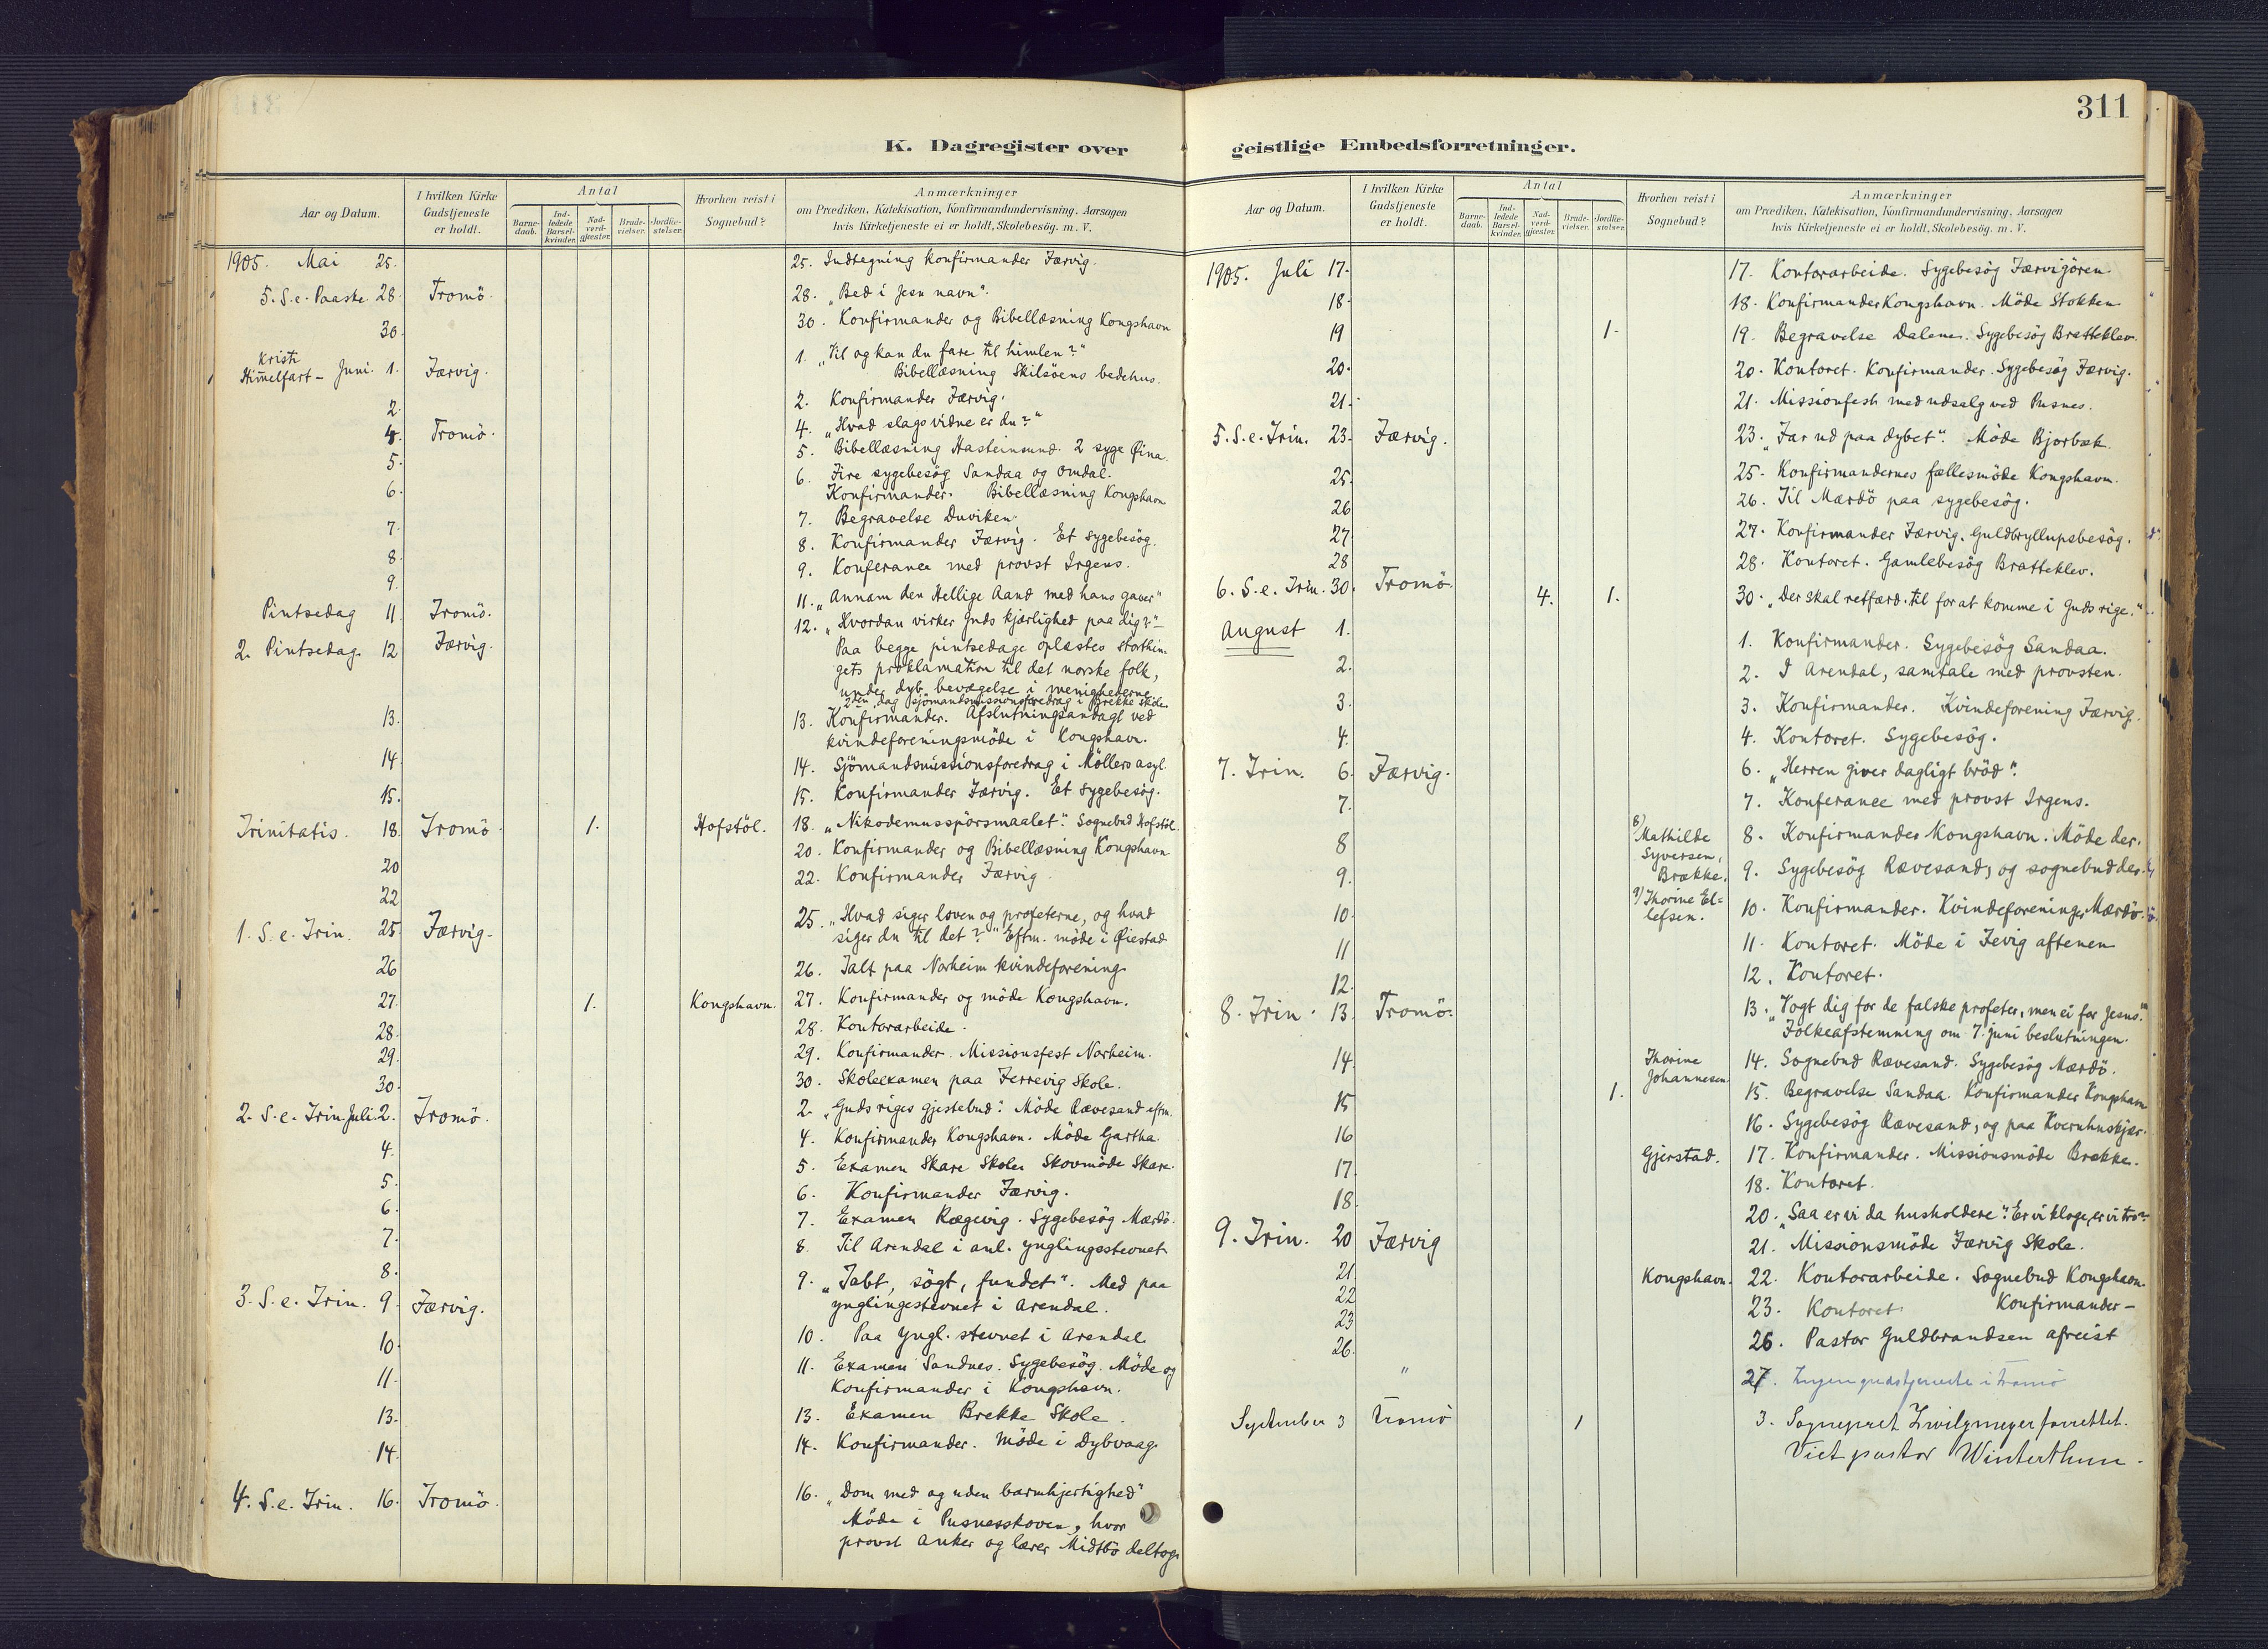 311
K. Dagregister over geistlige Embedsforretninger.
Aar og Datum.
I hvilken Kirke Gudstjeneste er holdt.
Antal
Barne-daab.
Ind-ledede Barsel-kvinder.
Nad-verd-gjæster.
Brude-vielser.
Jordfæ-stelser.
Hvorhen reist i Sognebud?
Anmærkninger
om Prædiken, Katekisation, Konfirmandundervisning, Aarsagen
hvis Kirketjeneste ei er holdt, Skolebesög. m. V.
1905. Mai 25. 25. Indtegning konfirmander Færvig.
5. S. e. Paaske 28. Tromö. 28. „Bed i Jesu navn".
30. 30. Konfirmander og Bibellæsning Kongshavn
Kristi
Himmelfart - Juni. 1. Færvig. 1. „Vil og kan du fare til himlen?"
Bibellæsning Skilsöens bedehus.
2. 2. Konfirmander Færvig.
4. Tromö. 4. „Hvad slags vidne er du?"
5. 5. Bibellæsning Hasteinsund. 2 syge Øina.
6. 6. Fire sygebesög Sandaa og Omdal.
Konfirmander. Bibellæsning Kongshavn
7. 7. Begravelse Duviken.
8. 8. Konfirmander Færvig. Et sygebesög.
9. 9. Konferance med provst Irgens.
Pintsedag 11. Tromö. 11. „Annam den Hellige Aand med hans gaver"
2. Pintsedag. 12 Færvig. 12. „Hvordan virker Guds kjærlighed paa dig?" -
Paa begge pintsedage oplæstes storthin-
gets proklamation til det norske folk,
under dyb bevægelse i menighederne
2den dag sjömandsmissionsforedrag i Brekke skole.
13. 13. Konfirmander. Afslutningsandagt ved
kvindeforeningsmöde i Kongshavn.
14. 14. Sjömandsmissionsforedrag i Möllers asyl.
15. 15. Konfirmander Færvig. Et sygebesög.
Trinitatis. 18. Tromö. 1. Hofstöl. 18. „Nikodemusspörsmaalet." Sognebud Hofstöl.
20 20. Konfirmander og Bibellæsning Kongshavn
22 22. Konfirmander Færvig.
1. S. e. Trin. 25. Færvig. 25. „Hvad siger loven og profeterne, og hvad
siger du til det?" Eftm. möde i Øiestad
26 26. Talt paa Norheim kvindeforening.
27. 1. Kongshavn. 27. Konfirmander og möde Kongshavn.
28. 28. Kontorarbeide.
29. 29. Konfirmander. Missionsfest Norheim.
30. 30. Skoleexamen paa Ferrevig Skole.
2. S. e. Trin. Juli. 2. Tromö. 2. „Guds riges gjestebud". Möde Rævesand eftm.
4. 4. Konfirmander Kongshavn. Möde Gartha.
5. 5. Examen Skare Skole. Skovmöde Skare.
6. 6. Konfirmander Færvig.
7. 7. Examen Rægevig. Sygebesög Mærdö.
8. 8. Til Arendal i anl. ynglingestevnet
3. S. e. Trin. 9. Færvig. 9. „Tabt, sögt, fundet". Med paa
ynglingestevnet i Arendal.
10. 10. Paa yngl. stevnet i Arendal.
11. 11. Examen Sandnes. Sygebesög. Möde og
Konfirmander i Kongshavn.
13. 13. Examen Brekke Skole.
14. 14. Konfirmander. Möde i Dybvaag.
4. S. e. Trin. 16. Tromö. 16. „Dom med og uden barmhjertighed"
Möde i Pusnesskoven, hvor
provst Anker og lærer Midtbö deltog.
Aar og Datum.
I hvilken Kirke Gudstjeneste er holdt.
Antal
Barne-daab.
Ind-ledede Barsel-kvinder.
Nad-verd-gjæster.
Brude-vielser.
Jordfæ-stelser.
Hvorhen reist i Sognebud?
Anmærkninger
om Prædiken, Katekisation, Konfirmandundervisning, Aarsagen
hvis Kirketjeneste ei er holdt, Skolebesög. m. V.
1905. Juli 17. 17. Kontorarbeide. Sygebesög Færvigören.
18. 18. Konfirmander Kongshavn. Möde Stokken
19 1. 19. Begravelse Dalene. Sygebesög Bratteklev.
20. 20. Kontoret. Konfirmander. Sygebesög Færvig.
21. 21. Missionsfest med udsalg ved Pusnes.
5. S. e. Trin. 23. Færvig. 23. „Far ud paa dybet". Möde Bjorbæk.
25. 25. Konfirmandernes fællesmöde Kongshavn.
26 26. Til Mærdö paa sygebesög.
27. 27. Konfirmander Færvig. Guldbryllupsbesög.
28 28. Kontoret. Gamlebesög Bratteklev.
6. S. e. Trin. 30. Tromö. 4. 1. 30. „Der skal retfærd. til for at komme i Guds rige."
August 1. 1. Konfirmander. Sygebesög Sandaa.
2. 2. I Arendal, samtale med provsten.
3. 3. Konfirmander. Kvindeforening Færvig.
4. 4. Kontoret. Sygebesög.
7. Trin. 6. Færvig. 6. „Herren giver dagligt bröd".
7. 7. Konferance med provst Irgens.
8 8) Mathilde Syversen, Brække. 8. Konfirmander Kongshavn. Möde der.
9. 9) Thorine El-lefsen. 9. Sygebesög Rævesand, og sognebud der.
10. 10. Konfirmander. Kvindeforening Mærdö.
11 11. Kontoret. Möde i Fevig aftenen
12. 12. Kontoret.
8. Trin. 13. Tromö. 13. „Vogt dig for de falske profeter, men ei for Jesus."
Folkeafstemning om 7. juni beslutningen.
14. Thorine Johannesen. 14. Sognebud Rævesand. Sygebesög Mærdö.
15 1. 15. Begravelse Sandaa. Konfirmander Kongshavn
16 16. Sygebesög Rævesand, og paa Kvernhuskjær.
17. Gjerstad. 17. Konfirmander. Missionsmöde Brekke.
18. 18. Kontoret.
9. Trin. 20 Færvig 20. „Saa er vi da husholdere". Er vi kloge, er vi tro?
21. 21. Missionsmöde Færvig Skole.
22 Kongshavn. 22. Kontorarbeide. Sognebud Kongshavn.
23 23. Kontoret. Konfirmander -
26. 26. Pastor Guldbrandsen afreist
" 27. Ingen gudstjeneste i Tromö
September 3 Tromö 1 3. Sognepret Zwilgmeyer forrettet.
Viet pastor Winterthun.